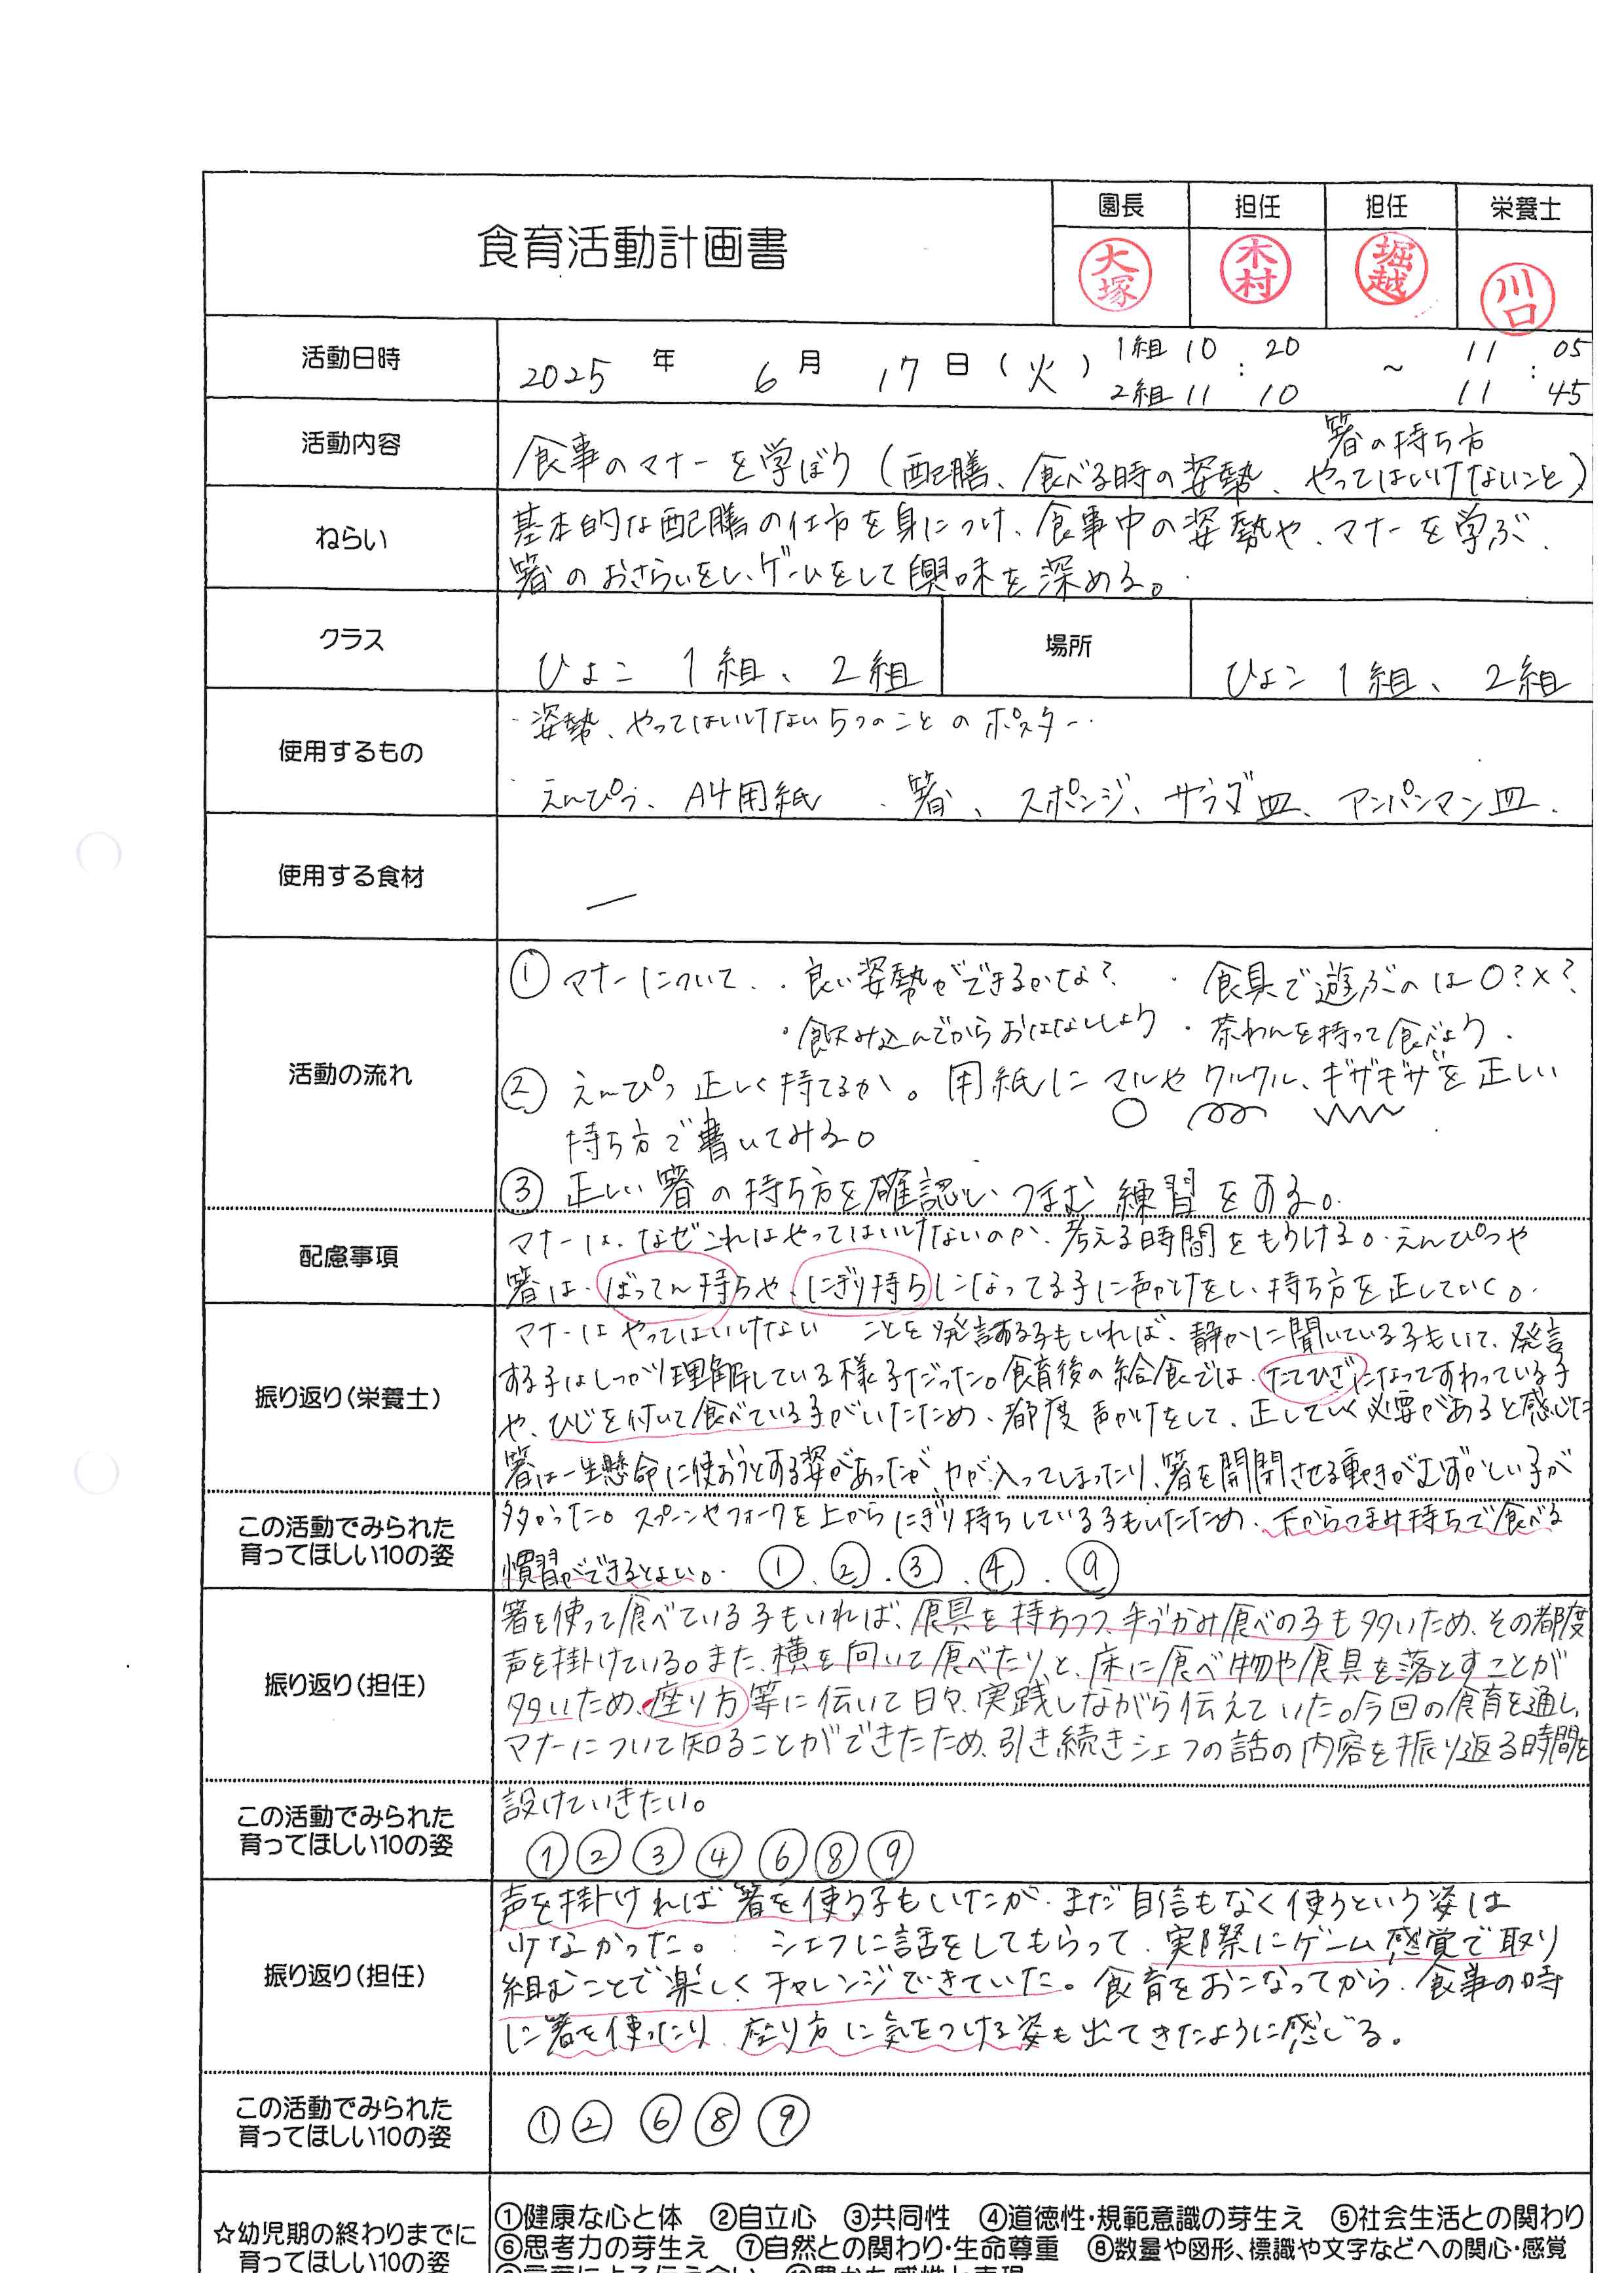 食育活動計画書
園長 担任 担任 栄養士
大塚 木村 堀越 川口
活動日時 2025年 6月 17日(火) 1組 10:20 ~ 11:05
2組 11:10 11:45
活動内容 箸の持ち方
食事のマナーを学ぼう(配膳、食べる時の姿勢、やってはいけないこと)
ねらい 基本的な配膳の仕方を身につけ、食事中の姿勢や、マナーを学ぶ、
箸のおさらいをし、ゲームをして興味を深める。
クラス ひよこ 1組、2組 場所 ひよこ 1組、2組
使用するもの ・姿勢、やってはいけない5つのことのポスター
・えんぴつ、A4用紙 ・箸、スポンジ、サラダ皿、アンパンマン皿
使用する食材 ー
活動の流れ
① マナーについて ・良い姿勢ができるかな? ・食具で遊ぶのは○?×?
・飲み込んでからおはなししよう ・茶わんを持って食べよう
② えんぴつ正しく持てるか。用紙にマルやクルクル、ギザギザを正しい
持ち方で書いてみる。
③ 正しい箸の持ち方を確認し、つまむ練習をする。
配慮事項 マナーは、なぜこれはやってはいけないのか、考える時間をもうける。えんぴつや
箸は、ばってん持ちや、にぎり持ちになってる子に声かけをし、持ち方を正していく。
振り返り(栄養士) マナーはやってはいけない ことを発言する子もいれば、静かに聞いている子もいて、発言
する子はしっかり理解している様子だった。食育後の給食では、たてひざになってすわっている子
や、ひじを付いて食べている子がいたため、都度声かけをして、正していく必要があると感じた
箸は一生懸命に使おうとする姿があったが、力が入ってしまったり、箸を開閉させる動きがむずかしい子が
多かった。スプーンやフォークを上からにぎり持ちしている子もいたため、下からつまみ持ちで食べる
慣習ができるとよい。
この活動でみられた
育ってほしい10の姿 ①、②、③、④、⑨
振り返り(担任) 箸を使って食べている子もいれば、食具を持ちつつ、手づかみ食べの子も多いため、その都度
声を掛けている。また、横を向いて食べたり、と、床に食べ物や食具を落とすことが
多いため、座り方等に伝いて日々、実践しながら伝えていた。今回の食育を通し、
マナーについて知ることができたため、引き続きシェフの話の内容を振り返る時間を
設けていきたい。
この活動でみられた
育ってほしい10の姿 ①②③④⑥⑧⑨
振り返り(担任) 声を掛ければ箸を使う子もいたが、まだ自信もなく使うという姿は
少なかった。シェフに話をしてもらって、実際にゲーム感覚で取り
組むことで楽しくチャレンジできていた。食育をおこなってから、食事の時
に箸を使ったり、座り方に気をつける姿も出てきたように感じる。
この活動でみられた
育ってほしい10の姿 ①② ⑥⑧⑨
☆幼児期の終わりまでに
育ってほしい10の姿
①健康な心と体 ②自立心 ③共同性 ④道徳性・規範意識の芽生え ⑤社会生活との関わり
⑥思考力の芽生え ⑦自然との関わり・生命尊重 ⑧数量や図形、標識や文字などへの関心・感覚